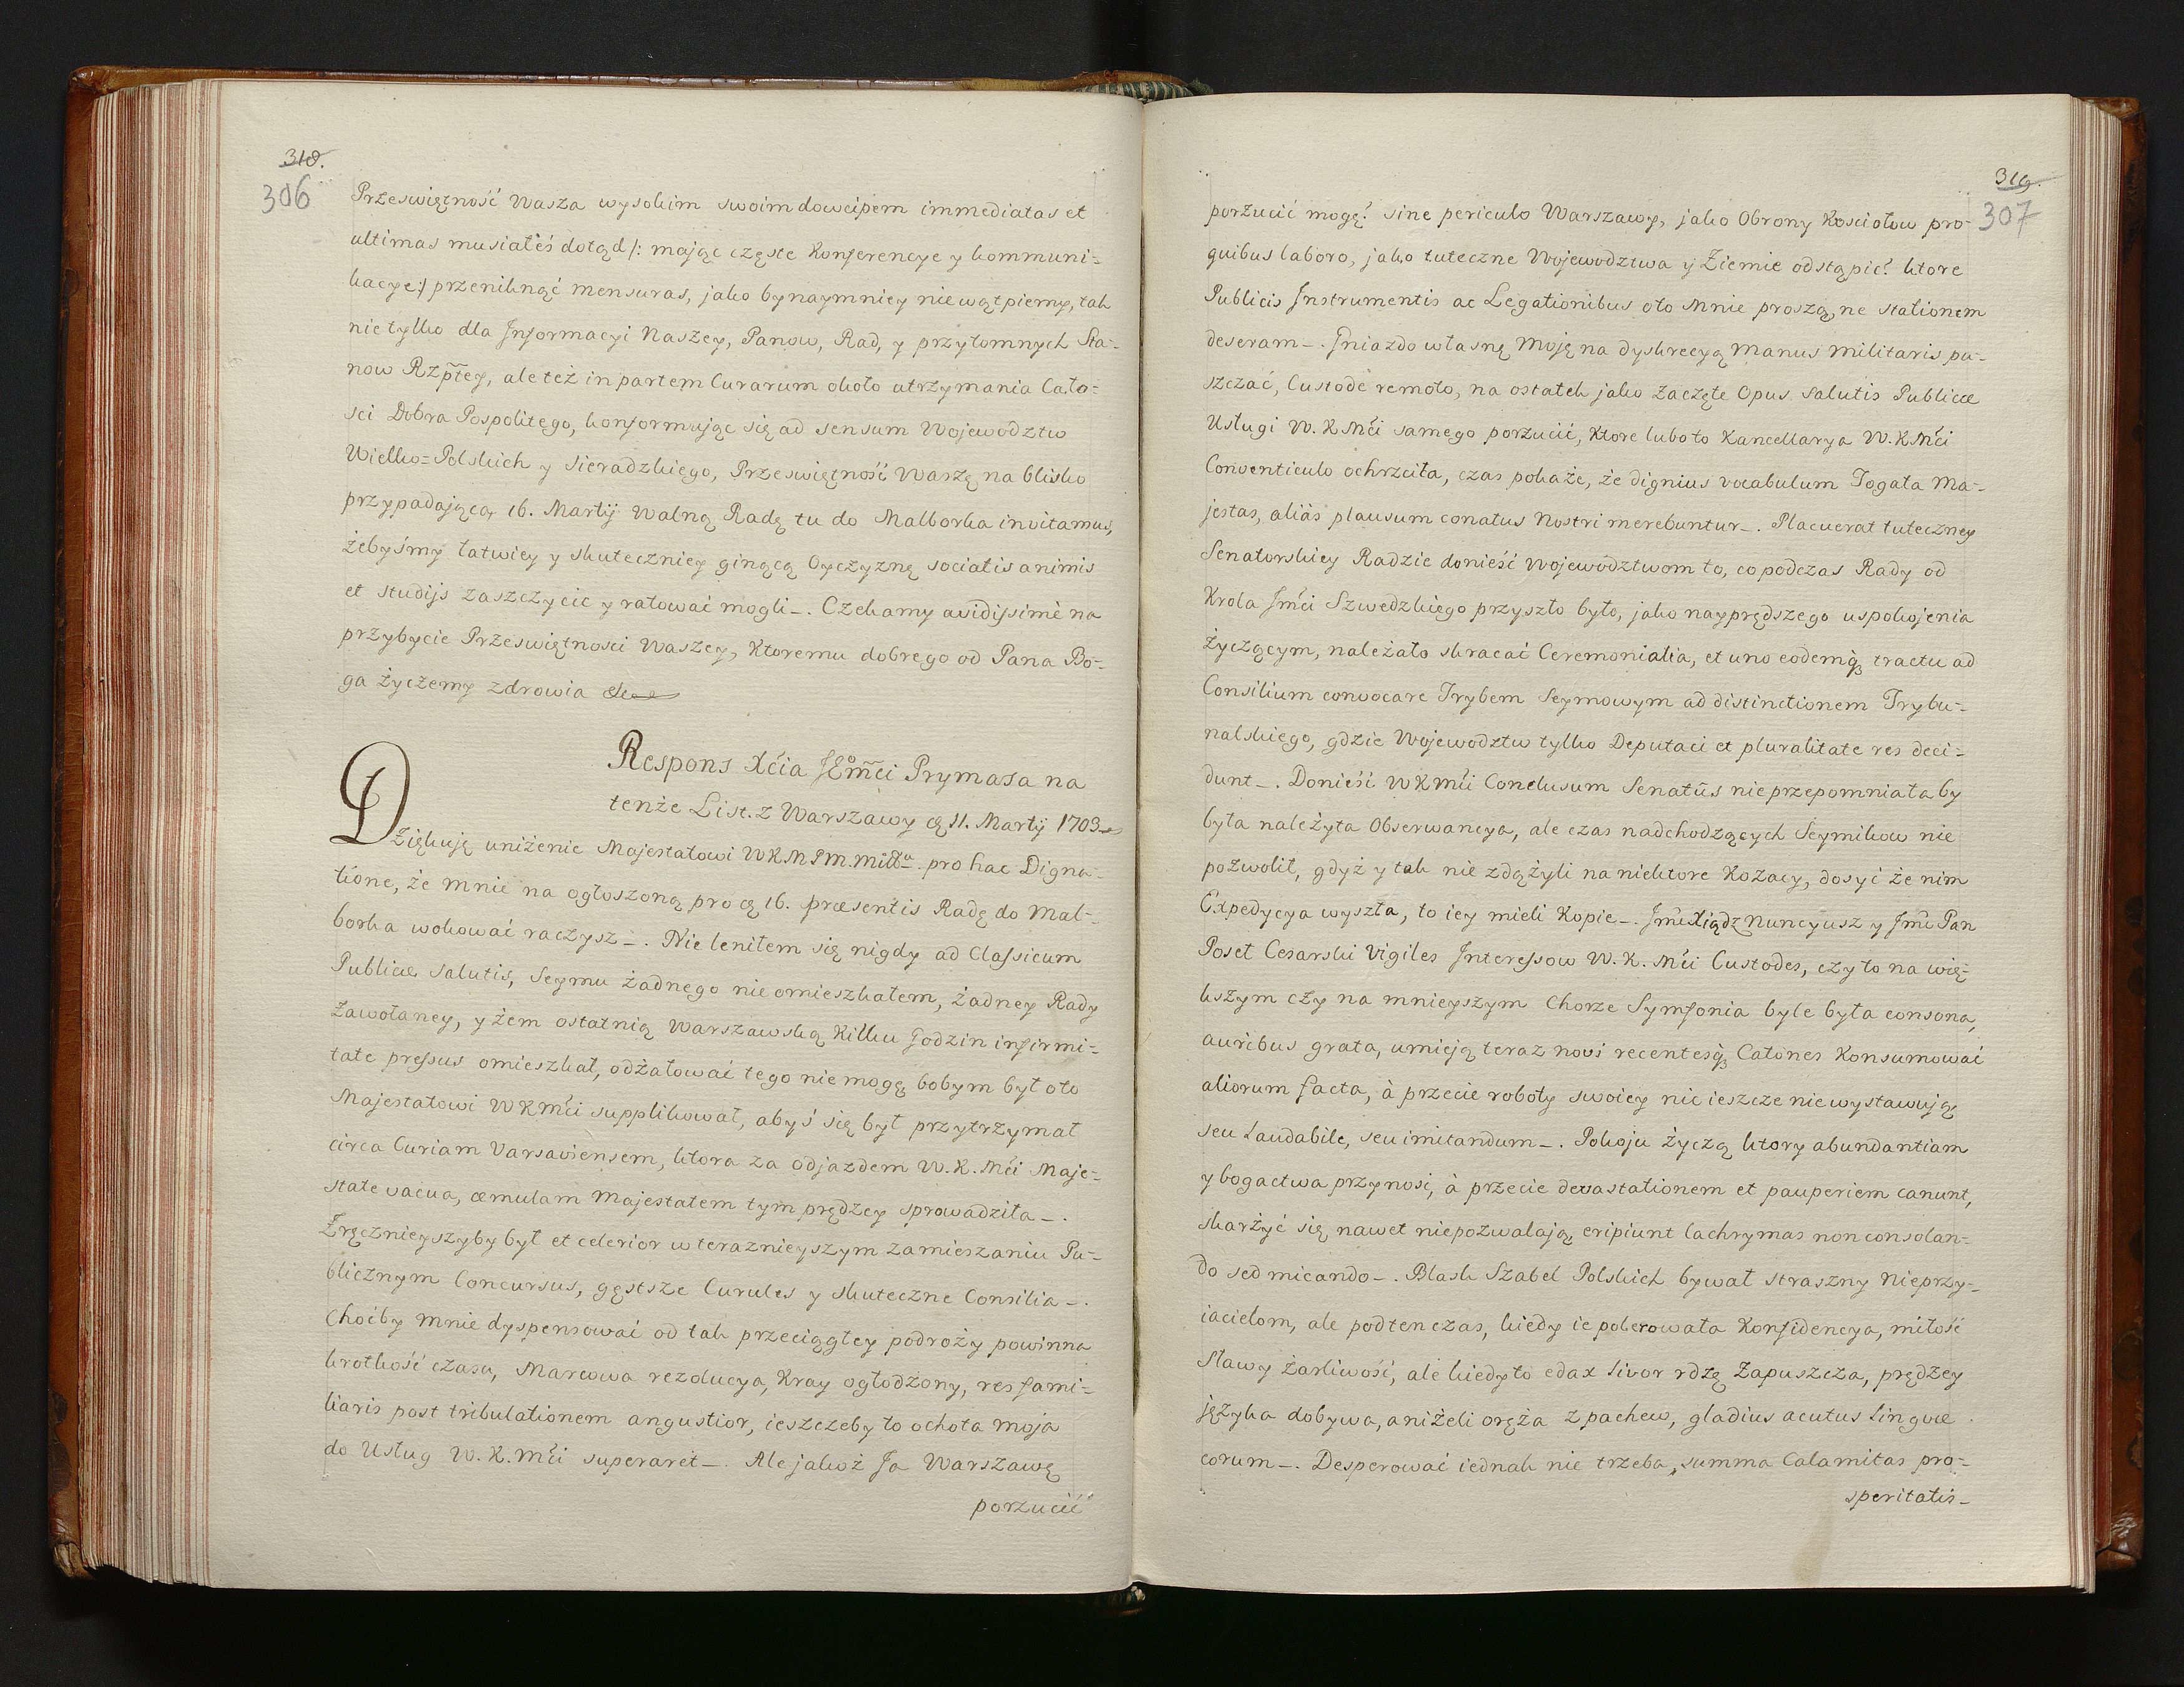 318.
306
Przeswiętność Wasza wysokim swoim dowcipem immediatas et
ultimas musiałeś dotąd /: maiąc częste Konferencye y kommuni-
kacye :/ przeniknąć mensuras, jako bynaymniey nie wątpiemy, tak
nie tylko dla Informacyi Naszey, Panow, Rad, y przytomnych Sta-
now Rzptey, ale też in partem Curarum około utrzymania Cało-
sci Dobra Pospolitego, konformując się ad sensum Wojewodztw
Wielko-Polskich y Sieradzkiego, Przeswiętność Waszę na blisko
przypadającą 16. Martij Walną Radę tu do Malborka invitamus,
żebyśmy łatwiey y skuteczniey ginącą Oyczyznę sociatis animis
et studijs zaszczycic y ratować mogli _. Czekamy avidissimè na
przybycie Przeswiętnosci Waszey, Ktoremu dobrego od Pana Bo-
ga życzemy zdrowia &c
Respons Xcia JEmci Prymasa na
tenże List. z Warszawy 11. Martij 1703
Dziękuję uniżenie Majestatowi WKMPM. Miłł. pro hac Digna-
tione, że mnie na ogłoszoną pro 16. præsentis Radę do Mal-
borka wokować raczysz _. Nie leniłem się nigdy ad Classicum
Publicæ Salutis, Seymu żadnego nie omieszkałem, żadney Rady
zawołaney, y żem ostatnią Warszawską Kilku Godzin infirmi-
tate pressus omieszkał, odżałować tego nie mogę bobym był oto
Majestatowi WKMci supplikował, abyś się był przytrzymał
circa Curiam Varsaviensem, ktora za odjazdem W.K.Mci Maje-
state vacua, æmulam Majestatem tym prędzey sprowadziła _.
Zręcznieyszyby był et celerior w terazniejszym zamieszaniu Pu-
blicznym Concursus, gęstsze Curules y skuteczne Consilia _.
Choćby mnie dyspensować od tak przeciągłey podroży powinna
krotkość czasu, Marcowa rezolucya, Kray ogłodzony, res fami-
liaris post tribulationem angustior, ieszczeby to ochota moja
do Usług W.K.Mci superaret _. Ale jakoż Ja Warszawę
porzucić
319.
307
porzucić mogę? sine periculo Warszawy, jako Obrony Kosciołow pro
quibus laboro, jako tuteczne Wojewodztwa y Ziemie odstąpić? ktore
Publicis Instrumentis ac Legationibus oto mnie proszą, ne stationem
deseram _. Gniazdo własnę Moję na dyskrecyą manus militaris pu-
szczać, Custode remoto, na ostatek jako zaczęte Opus salutis Publicæ
Usługi W.K.Mci samego porzucić, Ktore lubo to Kancellarya W.K.Mci
Conventiculo ochrzciła, czas pokaże, że dignius vocabulum Togata Ma-
jestas, aliàs plausum conatus Nostri merebuntur _. Placuerat tuteczney
Senatorskiey Radzie donieść Wojewodztwom to, co podczas Rady od
Krola Jmci Szwedzkiego przyszło było, jako nayprędszego uspokojenia
życzącym, należało skracać Ceremonialia, et uno eodemq; tractu ad
Consilium convocare Trybem Seymowym ad distinctionem Trybu-
nalskiego, gdzie Wojewodztw tylko Deputaci et pluralitate res deci-
dunt _. Donieść WKMci Conclusum Senatûs nie przepomniała by
była należyta Obserwancya, ale czas nadchodzących Seymikow nie
pozwolił, gdyż y tak nie zdążyli na niektore Kozacy, dosyć że nim
Expedycya wyszła, to iey mieli Kopie _. Jmć Xiądz Nuncyusz y Jmć Pan
Poseł Cesarski Vigiles Interessow W.K.Mci Custodes, czy to na wię-
kszym czy na mnieyszym Chorze Symfonia byle była consona,
auribus grata, umieją teraz novi recentesq; Catones Konsumować
aliorum facta, à przecie roboty swoiey nic ieszcze nie wystawują
seu Laudabile, seu imitandum _. Pokoju życzą ktory abundantiam
y bogactwa przynosi, à przecie devastationem et pauperiem canunt,
skarżyć się nawet niepozwalają, eripiunt lachrymas non consolan-
do sed micando _. Blask Szabel Polskich bywał straszny Nieprzy-
iaciełom, ale podtenczas, kiedy ie polerowała Konfidencya, miłość
Sławy żarliwość, ale kiedy to edax livor rdzę zapuszcza, prędzey
języka dobywa, aniżeli oręża z pachew, gladius acutus lingvæ
eorum _. Desperować iednak nie trzeba, summa Calamitas pro-
speritatis _